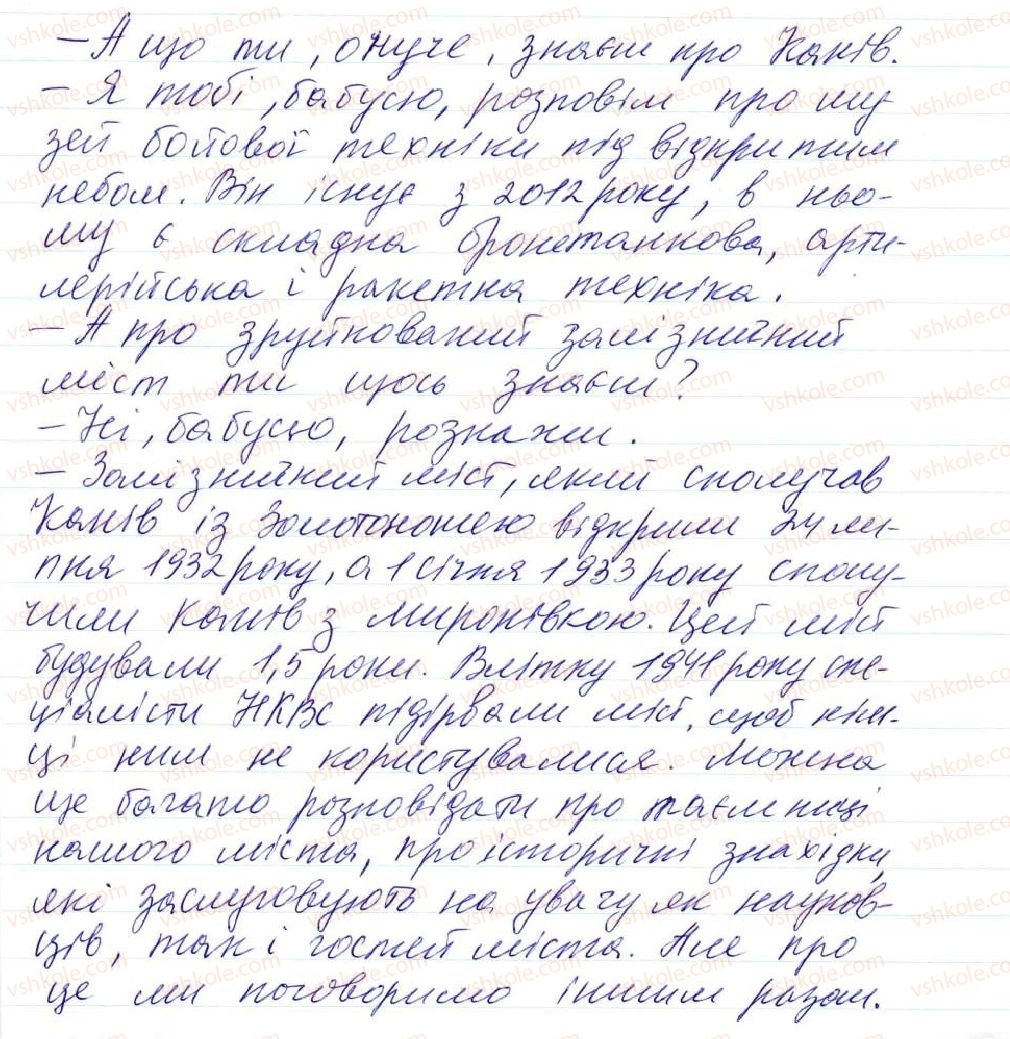 – А що ти, онуче, знаєш про Канів.
– Я тобі, бабусю, розповім про му-
зей бойової техніки під відкритим
небом. Він існує з 2012 року, в ньо-
му є складна бронетанкова, арти-
лерійська і ракетна техніка.
– А про зруйнований залізничний
міст ти щось знаєш?
– Ні, бабусю, розкажи.
– Залізничний міст, який сполучав
Канів із Золотоношею відкрили 24 ли-
пня 1932 року, а 1 січня 1933 року сполу-
чили Канів з Миронівкою. Цей міст
будували 1,5 роки. Влітку 1941 року спе-
ціалісти НКВС підірвали міст, щоб нім-
ці ним не користувалися. Можна
ще багато розповідати про таємниці
нашого міста, про історичні знахідки,
які заслуговують на увагу як науков-
ців, так і гостей міста. Але про
це ми поговоримо іншим разом.